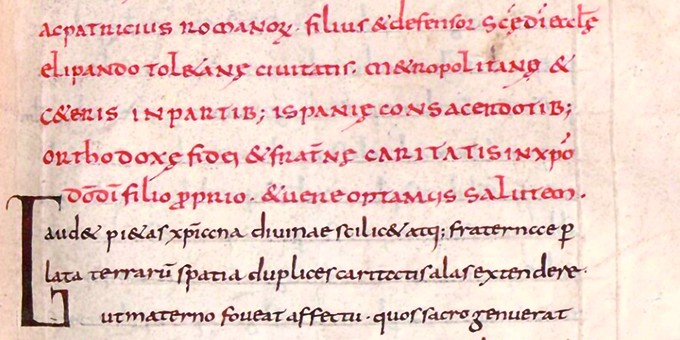 ac patricius romanorꝝ · filius & defensor scę dī ecclę
elipando tol&anę civitatis · m&ropolitano &
c&eris in partib; ispanię consacerdotib;
orthodoxę fidei & frat̄nę caritatis in xp̄o
dō dī filio ꝓprio · & uero optamus salutem ·
Gaude& pi&as xp̄iana diuinae scilic& atq; fraternae ꝑ
lata terrarū spatia duplices caritatis alas extendere ·
ut materno foueat affectu · quos sacro genuerat